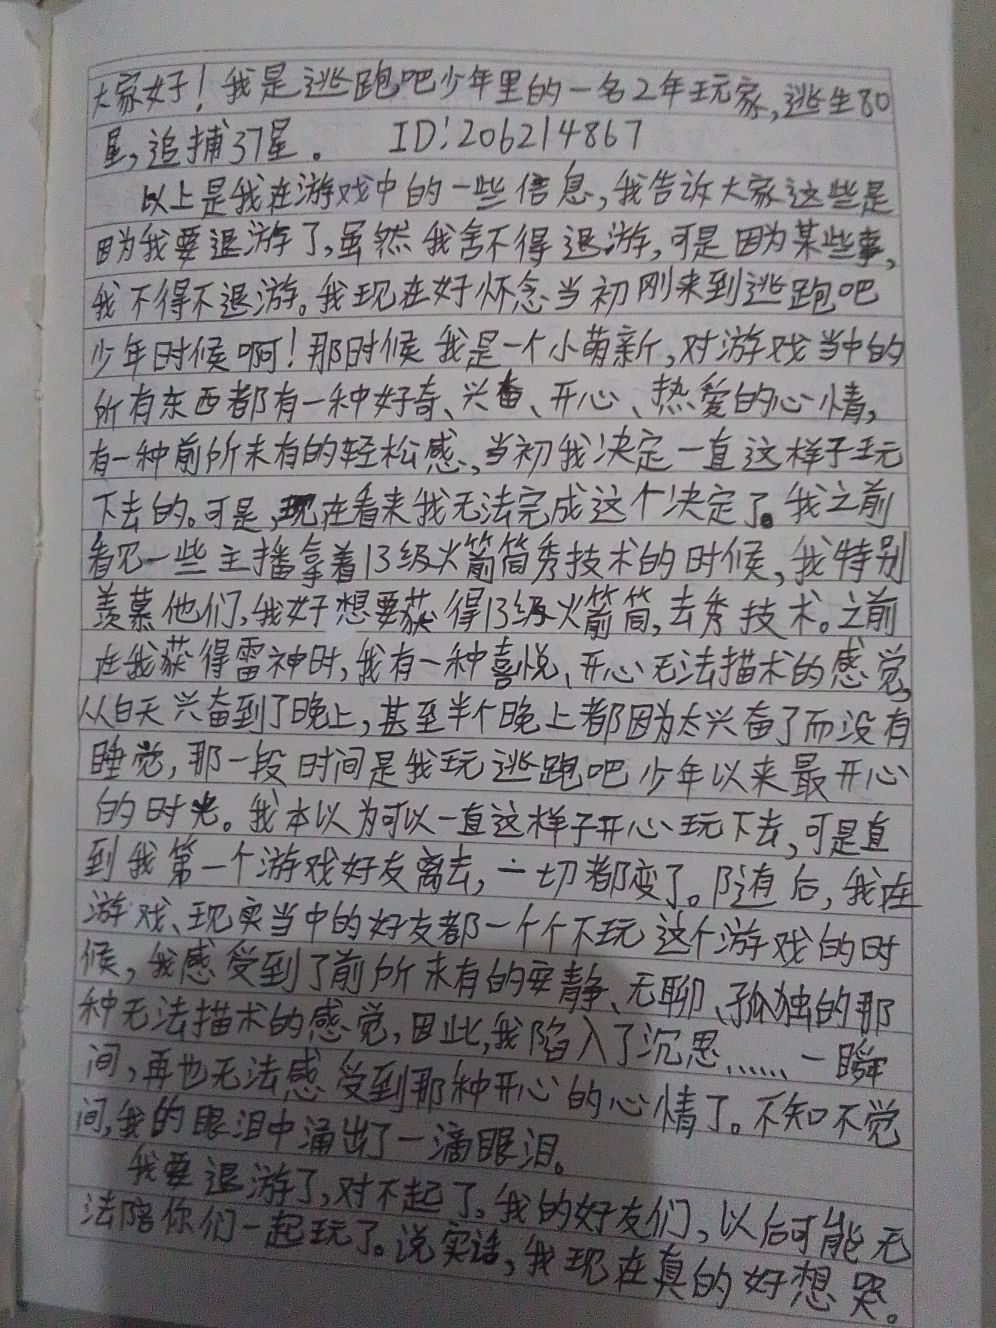 大家好！我是逃跑吧少年里的一名2年玩家，逃生80
星，追捕37星。 ID:206214867
以上是我在游戏中的一些信息，我告诉大家这些是
因为我要退游了，虽然我舍不得退游，可是因为某些事，
我不得不退游。我现在好怀念当初刚来到逃跑吧
少年时候啊！那时候我是一个小萌新，对游戏当中的
所有东西都有一种好奇、兴奋、开心、热爱的心情，
有一种前所未有的轻松感，当初我决定一直这样子玩
下去的。可是，现在看来我无法完成这个决定了。我之前
看见一些主播拿着13级火箭筒秀技术的时候，我特别
羡慕他们，我好想要获得13级火箭筒，去秀技术。之前
在我获得雷神时，我有一种喜悦、开心无法描术的感觉，
从白天兴奋到了晚上，甚至半个晚上都因为太兴奋了而没有
睡觉，那一段时间是我玩逃跑吧少年以来最开心
的时光。我本以为可以一直这样子开心玩下去，可是直
到我第一个游戏好友离去，一切都变了。随后，我在
游戏、现实当中的好友都一个个不玩这个游戏的时
候，我感受到了前所未有的安静、无聊、孤独的那
种无法描术的感觉，因此，我陷入了沉思......一瞬
间，再也无法感受到那种开心的心情了。不知不觉
间，我的眼泪中涌出了一滴眼泪。
我要退游了，对不起了，我的好友们，以后可能无
法陪你们一起玩了。说实话，我现在真的好想哭。